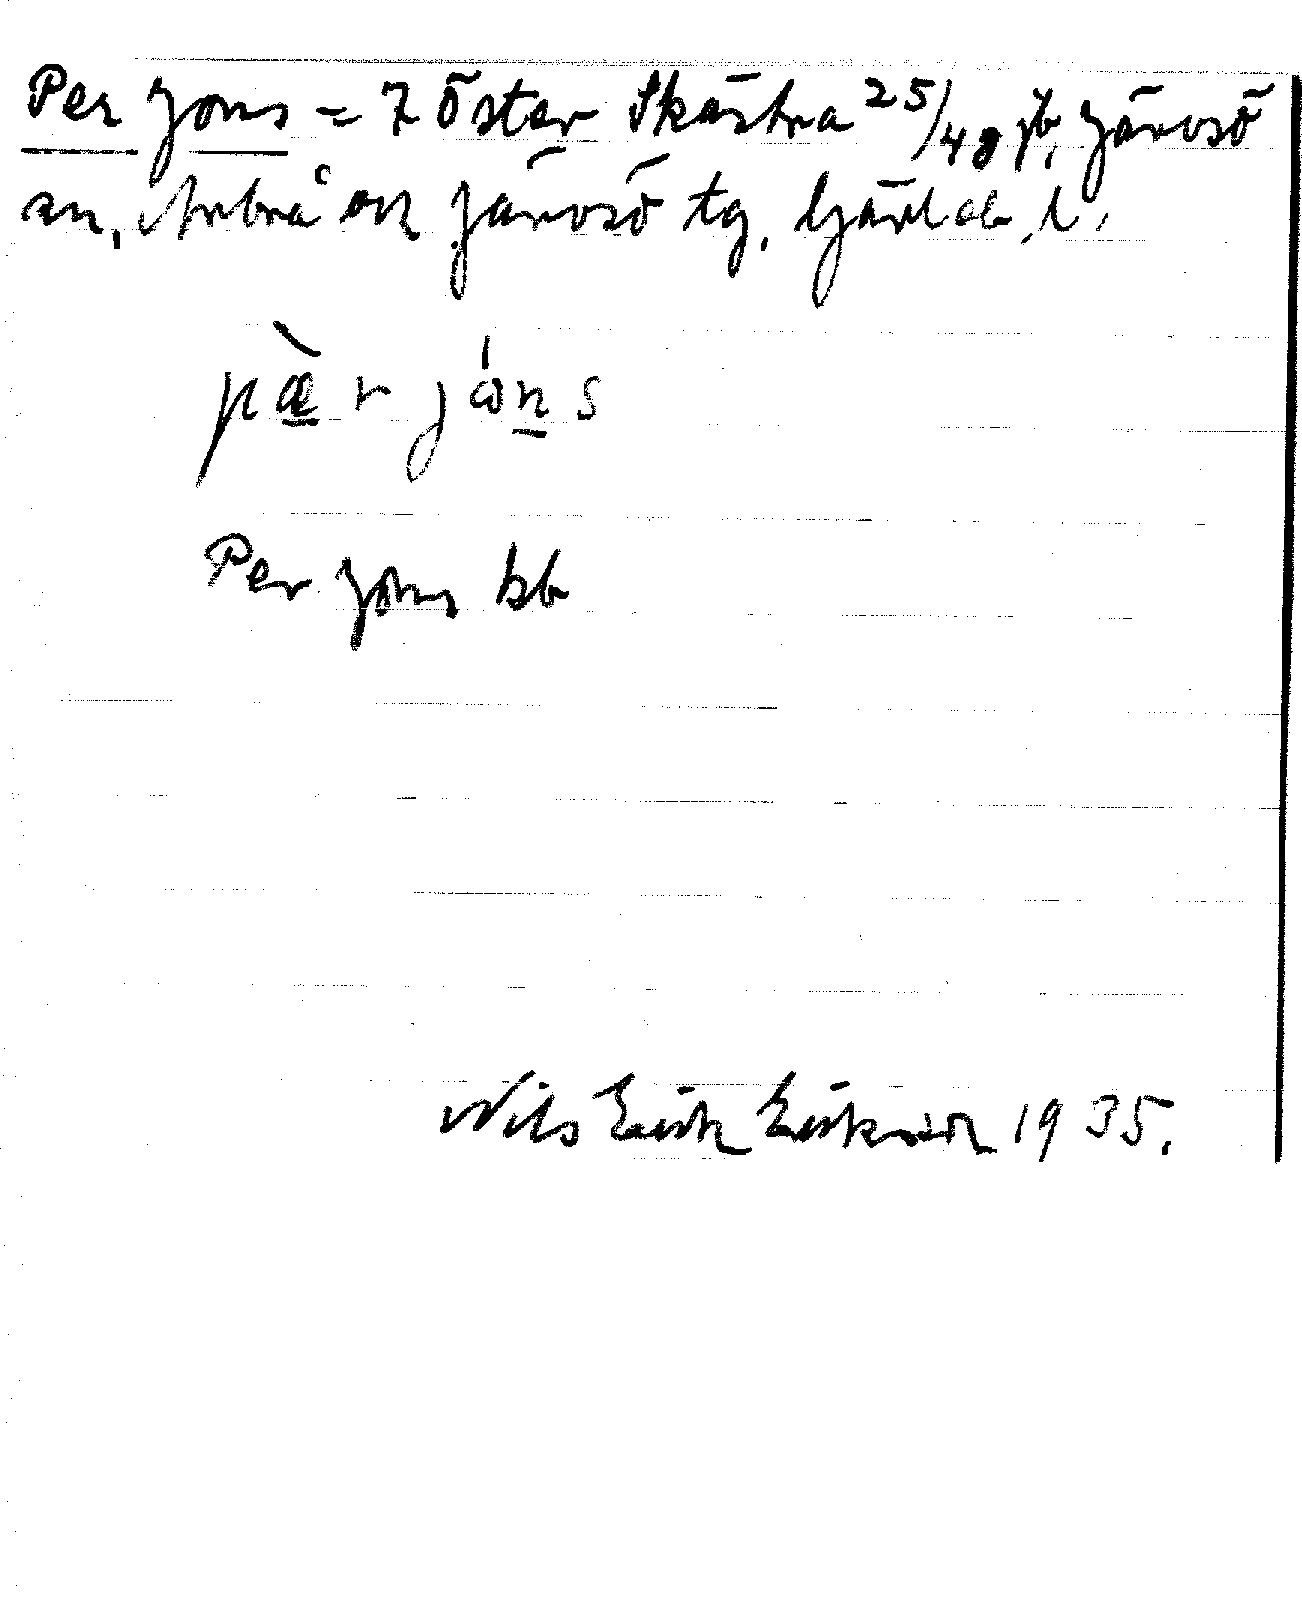 Per Jons = 7 Öster Skästra 25/48 jb, Järvsö
sn, Arbrå och Järvsö tg, Gävleb. l.
pær jóns
Per Jons kb
Nils Erik Eriksson 1935.